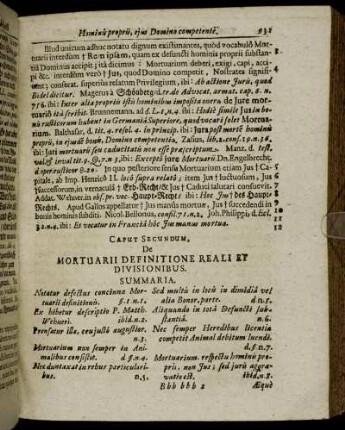 Hominis proprii, ejus Domino competente. 931
Illud unicum adhuc notatu dignum existimantes, quòd vocabulô Mor-
tuarii interdum † Rem ipsam, quam ex defuncti hominis proprii substan-
tiâ Dominus accipit: ità dicimus: Mortuarium deberi, exigi, capi, acci-
pi &c. interdùm verò † Jus, quod Domino competit, Nostrates signifi-
cent; consistat, separatio relatum Privilegium, ibi: Ab actione Jurii, quod
Bedel dicitur. Magerus à Schönberg d. tr. de Advocat. armat. cap. 6. n.
756. ibi: Inter alia propriis istis hominibus imposita onera de Jure mor-
tuarii ità scribit. Brunnemann. ad d. L. 5. n. 4. ibi: Hodie simile Jus in ho-
minis Germaniâ Superiore, quod vocari solet Mortua-
rium. Balthasar, d. tit. 4. resol. 4. in princip. ibi: Jura postmortè hominis
proprii, in ejusdē bonis, Domino competentia, Zasius, lib. 2. conf. 19. n. 36.
ibi: Juri mortuarii seu caducitatis non esse præscriptum. Manz. d. test.
valid. & inval. tit. 4. Q. 7. n. 3. ibi: Exceptô jure Mortuarii Dn. Engelbrecht.
In quo posteriore sensu Mortuarium etiam Jus † Ca-
pitale, ab Imp. Henrico II. locô suprà relatô; item Jus † luctuosum, Jus
† successorium, in vernaculâ † Erb-Recht/ & Jus † Caduci salutari consuevit.
Addat. Wehner. in obs. pr. voc. Haupt-Recht/ ibi: Hoc Jus des Haupt-
Rechts. Apud Gallos appellatur † Jus manus mortuæ, Jus † succedendi in
bonis hominis subditi. Nicol. Bellonus, consil. 71. n. 2. Joh. Philippi, d. Ecl.
32. n. 4. ibi: Et vocatur in Franciâ hoc Jus manus mortuæ.
CAPUT SECUNDUM,
De
MORTUARII DEFINITIONE REALI ET
DIVISIONIBUS.
SUMMARIA.
Notatur defectus concinnæ Mor-
tuarii definitionis. §. 1. n. 1.
Ex hibetur descriptio P. Matth.
Wehneri. ibid. n. 2.
Pensatur illa, eruque augustior.
n. 3.
Mortuarium non semper in Ani-
malibus consistit. d. §. n. 4.
Nec duntaxat in rebus particulari-
bus. n. 5.
Sed multis in locis in dimidiâ vel
aliâ Bonor. parte. d. n. 5.
Aliquando in totâ Defuncti sub-
stantiâ. n. 6.
Nec semper Heredibus licentia
competit Animal debitum luendi.
d. §. n. 7.
Mortuarium respectu hominis pro-
prii, non Jus; sed juris aggra-
vatio est. ibid. n. 8.
Bbb bbb 2 Æquè